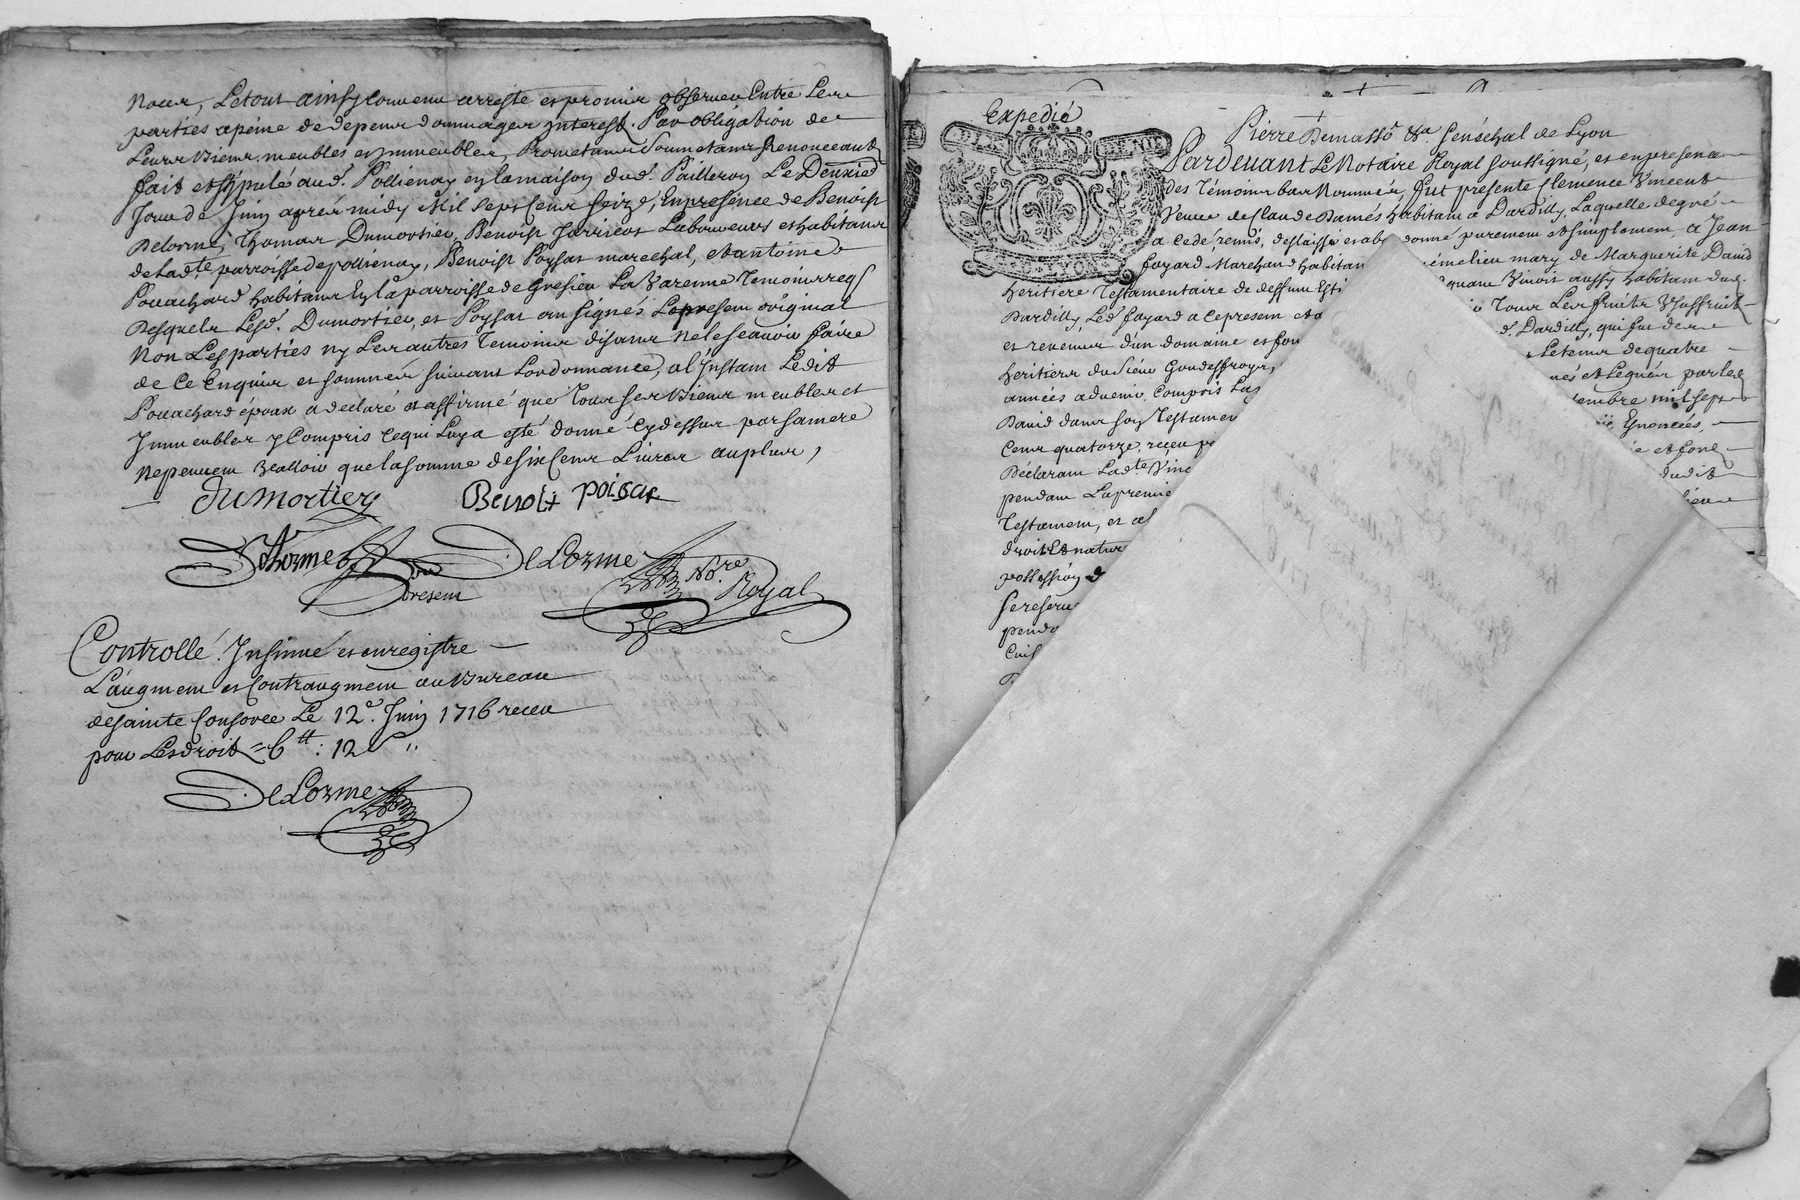 Noces, Letout ainsy convenu arresté et promis observer Entre Les
parties apeine de depens dommages Interest. Par obligation de
Leurs Biens meubles et Immeubles, Prometans Soumetans Renonceants
fait et stipulé aud. Pollienay en lamaison dud. Pailleron Le Deuxie
Jour de Juin apres midy Mil Sept Cens Seize, Enpresence de Benoist
Delorme, Thomas Dumortier, Benoist Jarricot Laboureurs et habitans
deladte parroisse depollienay, Benoist Poysat marechal, et antoine
Pouachard habitans En la parroisse de Gresieu La Varenne Temoins req
Desquels Lesd. Dumortier, et Poysat ont Signés Lepresent original
Non Les parties ny Les autres Temoins disans ne le scavoir faire
de Ce Enquis et sommés suivant Lordonnance, al Instant Ledit
Pouachard époux a declaré et affirmé que Tous ses Biens meubles et
Immeubles y Compris Cequi Luy a esté donné Cydessus par sa mere
ne peuvent Valloir que la somme de six Cens Livres au plus,
duMortier Benoist poisat
Delorme
present
DeLorme Nore
Royal
Controllé Insinué et enregistré
L'augment et Contraugment au Bureau
desainte Consorce Le 12e. Juin 1716 receu
pour Lesdroit = 6 tt : 12 s
DeLorme
Expedié
Pierre Demasso &a Seneschal de Lyon
Pardevant Le Notaire Royal Soussigné, et enpresence
des Témoins bas Nommés, fut presente Clemence Vincent
Veuve de Claude Damés habitant a Dardilly, Laquelle degré
a Cedé, remis, deslaissé et aban donné purement et simplement a Jean
fayard Marchand habitan mary de Marguerite David
heritiere Testamentaire de deffunt Esti Vivoit aussy habitant dud.
Dardilly, Led. fayard a Cepresent et a Tous Les fruits Usuffruits
et revenus d'un domaine et fon d. Dardilly, qui fut de
heritiers du Sieur Goudeffroy, et Letems de quatre
années advenir, Compris La nés et Legués par led.
David dans Son Testament tembre mil sept
Cens quatorze, receu p Enoncées,
Déclarant Ladte Vinc é et fond
pendant La premie dudit
Testament, et al
droits et natur
possession d
se reserv
pend